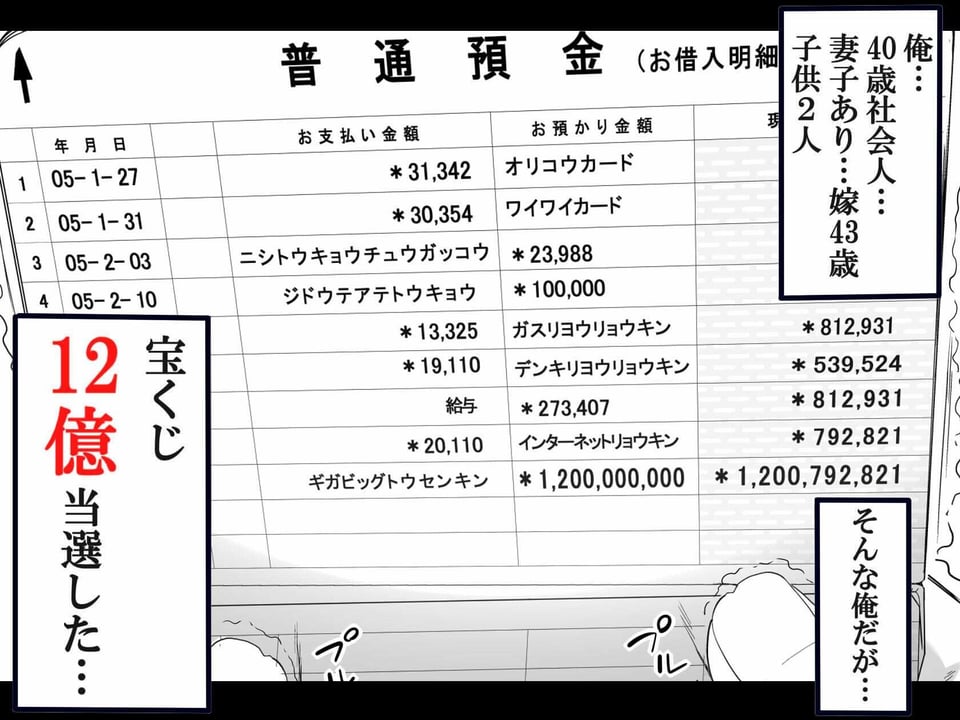 俺…
40歳社会人…
妻子あり…嫁43歳
子供２人
普通預金(お借入明細
年月日 お支払い金額 お預かり金額 現
1 05-1-27 *31,342 オリコウカード
2 05-1-31 *30,354 ワイワイカード
3 05-2-03 ニシトウキョウチュウガッコウ *23,988
4 05-2-10 ジドウテアテトウキョウ *100,000
*13,325 ガスリヨウリョウキン *812,931
*19,110 デンキリヨウリョウキン *539,524
給与 *273,407 *812,931
*20,110 インターネットリョウキン *792,821
ギガビッグトウセンキン *1,200,000,000 *1,200,792,821
そんな俺だが…
宝くじ
12億
当選した…
プル
プル